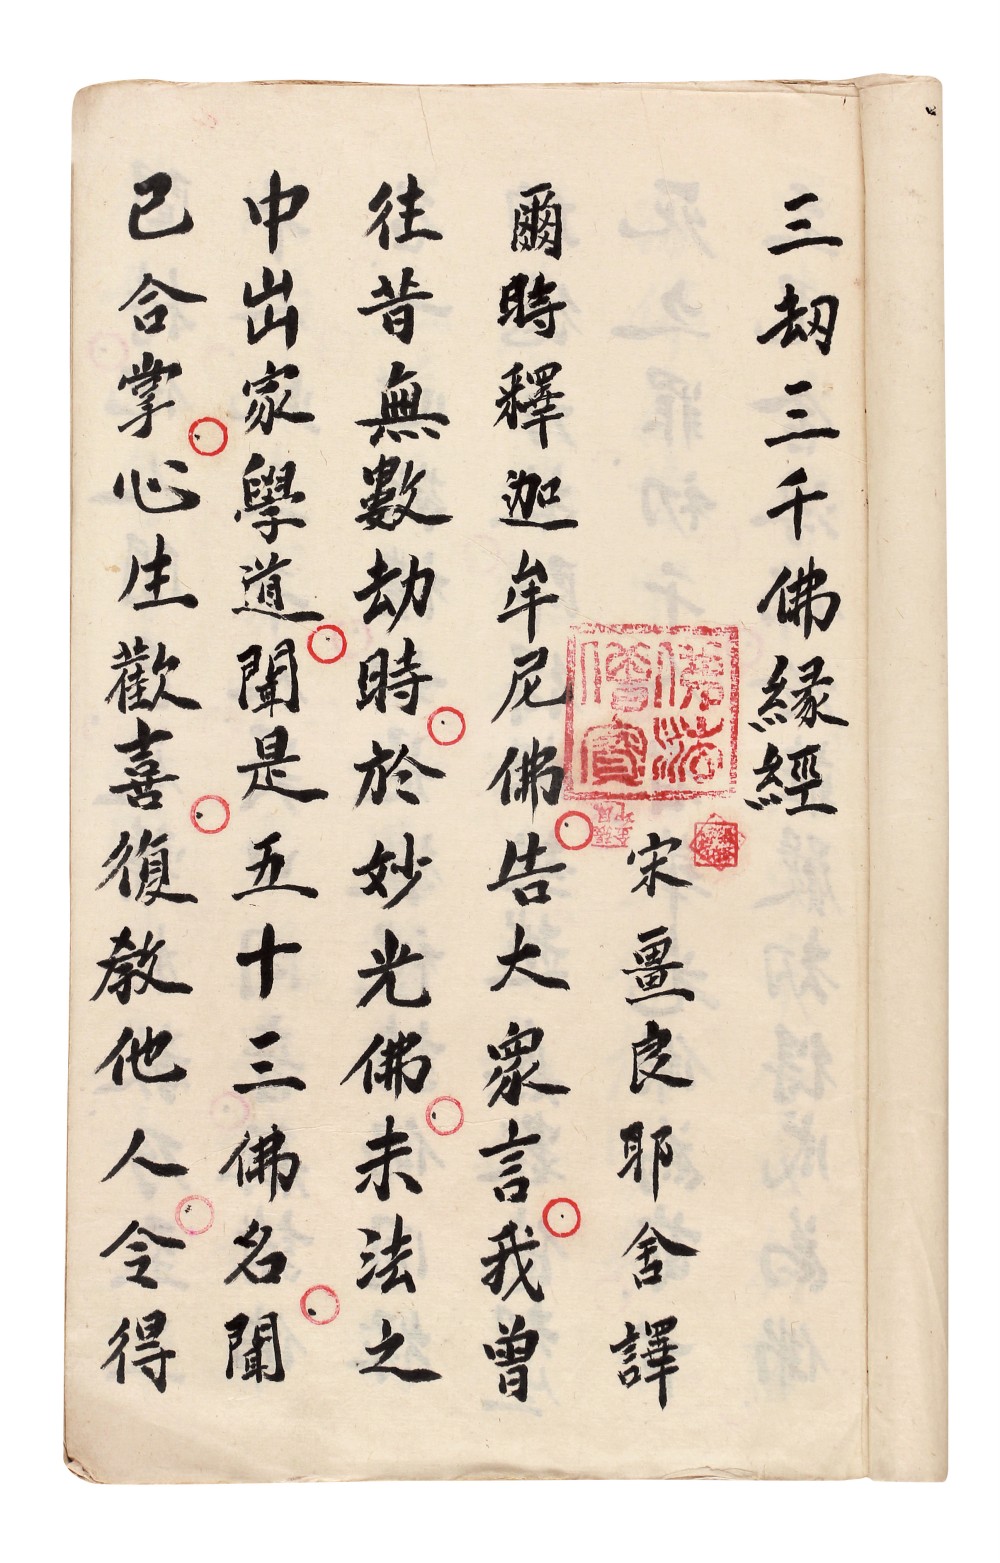 三劫三千佛緣經
宋畺良耶舍譯
爾時釋迦牟尼佛告大眾言我曾
往昔無數劫時於妙光佛末法之
中出家學道聞是五十三佛名聞
已合掌心生歡喜復教他人令得
佛法僧寶